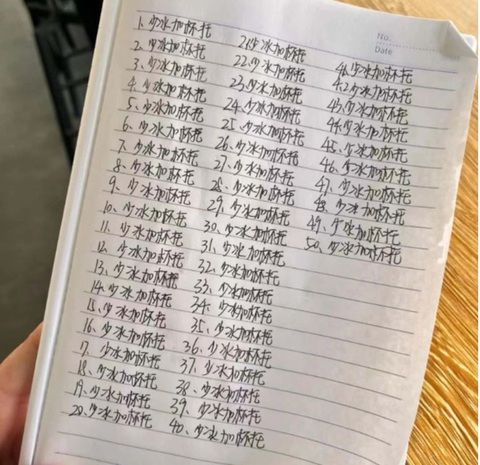 No.
Date
1、少冰加杯托
2、少冰加杯托
3、少冰加杯托
4、少冰加杯托
5、少冰加杯托
6、少冰加杯托
7、少冰加杯托
8、少冰加杯托
9、少冰加杯托
10、少冰加杯托
11、少冰加杯托
12、少冰加杯托
13、少冰加杯托
14、少冰加杯托
15、少冰加杯托
16、少冰加杯托
17、少冰加杯托
18、少冰加杯托
19、少冰加杯托
20、少冰加杯托
21、少冰加杯托
22、少冰加杯托
23、少冰加杯托
24、少冰加杯托
25、少冰加杯托
26、少冰加杯托
27、少冰加杯托
28、少冰加杯托
29、少冰加杯托
30、少冰加杯托
31、少冰加杯托
32、少冰加杯托
33、少冰加杯托
34、少冰加杯托
35、少冰加杯托
36、少冰加杯托
37、少冰加杯托
38、少冰加杯托
39、少冰加杯托
40、少冰加杯托
41、少冰加杯托
42、少冰加杯托
43、少冰加杯托
44、少冰加杯托
45、少冰加杯托
46、少冰加杯托
47、少冰加杯托
48、少冰加杯托
49、少冰加杯托
50、少冰加杯托